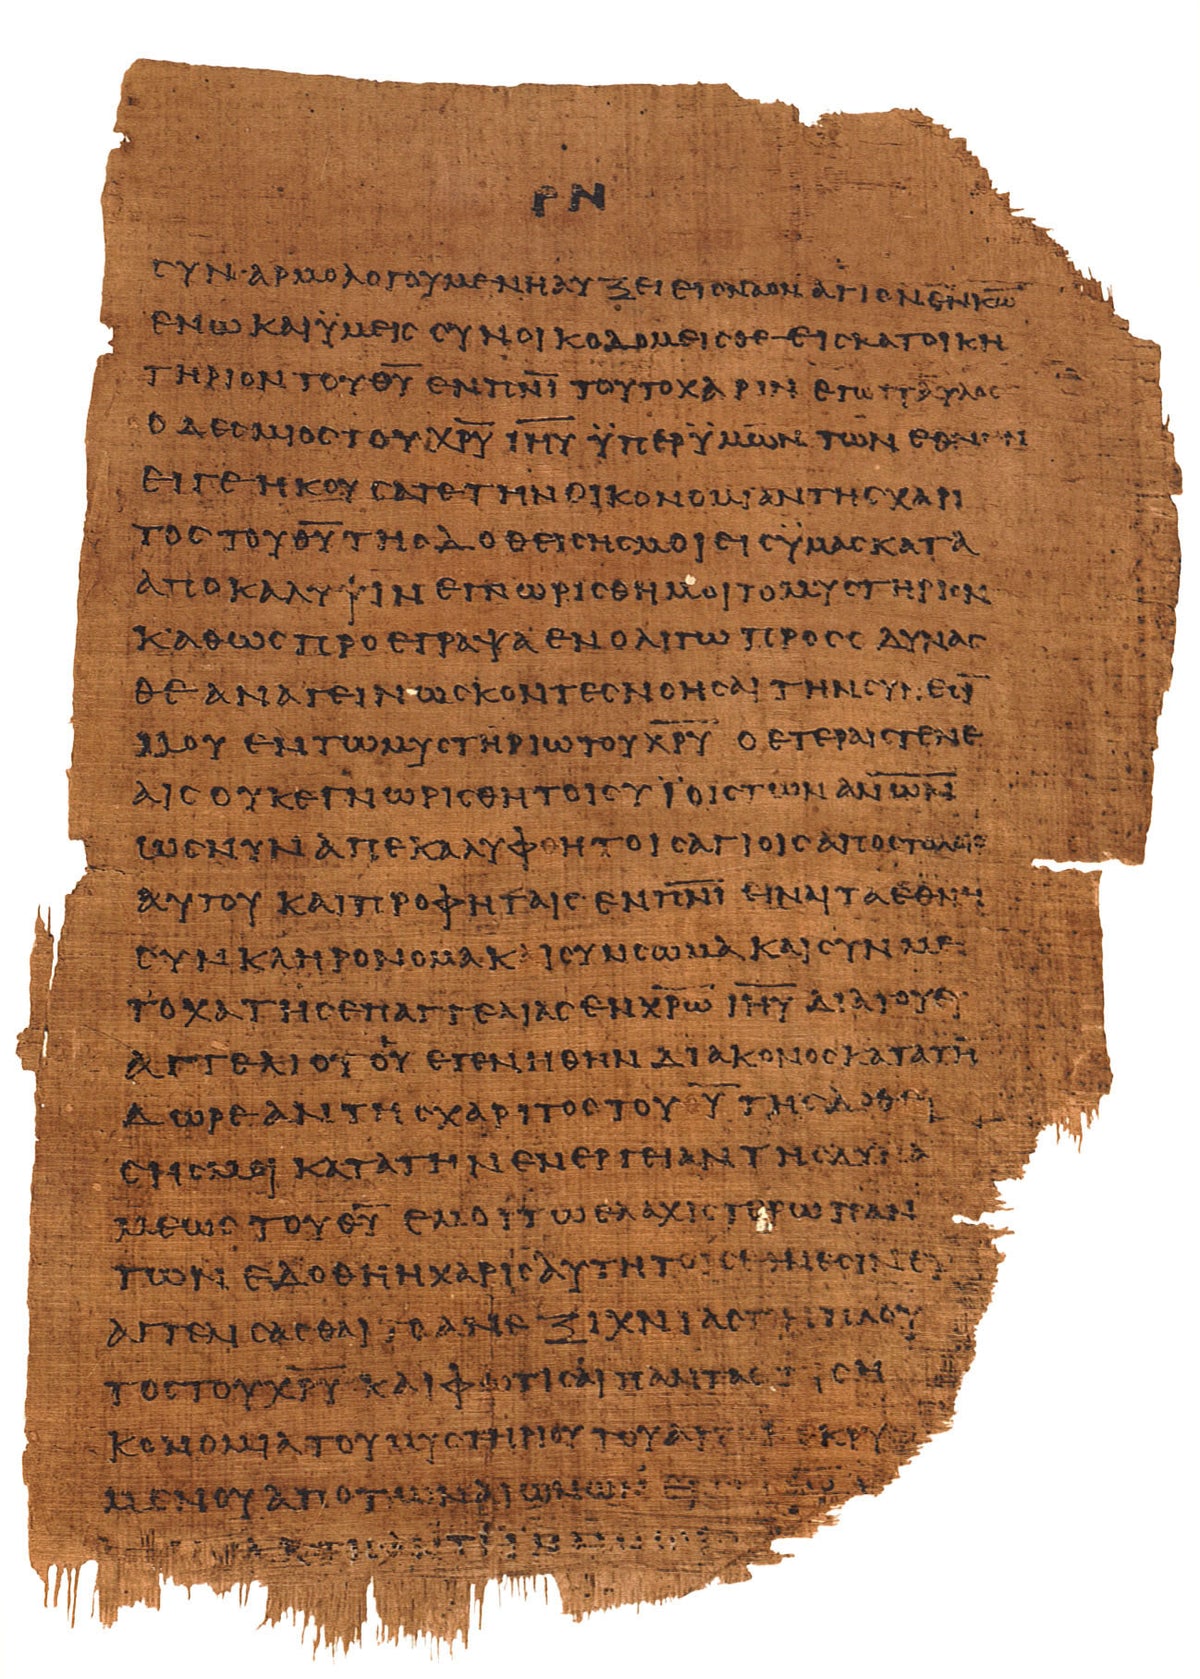 ΡΝ
ϹΥΝ·ΑΡΜΟΛΟΓΟΥΜΕΝΗΑΥΞΕΙΕΙϹΝΑΟΝΑΓΙΟΝΕΝΚ̅Ω̅
ΕΝΩΚΑΙΫΜΕΙϹϹΥΝΟΙΚΟΔΟΜΕΙϹΘΕΕΙϹΚΑΤΟΙΚΗ
ΤΗΡΙΟΝΤΟΥΘ̅Υ̅ΕΝΠ̅Ν̅Ι̅ΤΟΥΤΟΧΑΡΙΝΕΓΩΠΑΥΛΟϹ
ΟΔΕϹΜΙΟϹΤΟΥΧ̅Ρ̅Υ̅Ι̅Η̅Υ̅ΫΠΕΡΫΜΩΝΤΩΝΕΘΝΩΝ
ΕΙΓΕΗΚΟΥϹΑΤΕΤΗΝΟΙΚΟΝΟΜΙΑΝΤΗϹΧΑΡΙ
ΤΟϹΤΟΥΘ̅Υ̅ΤΗϹΔΟΘΕΙϹΗϹΜΟΙΕΙϹΫΜΑϹΚΑΤΑ
ΑΠΟΚΑΛΥΨΙΝΕΓΝΩΡΙϹΘΗΜΟΙΤΟΜΥϹΤΗΡΙΟΝ
ΚΑΘΩϹΠΡΟΕΓΡΑΨΑΕΝΟΛΙΓΩΠΡΟϹϹΔΥΝΑϹ
ΘΕΑΝΑΓΕΙΝΩϹΚΟΝΤΕϹΝΟΗϹΑΙΤΗΝϹΥΝΕϹΙΝ
ΜΟΥΕΝΤΩΜΥϹΤΗΡΙΩΤΟΥΧ̅Ρ̅Υ̅ΟΕΤΕΡΑΙϹΓΕΝΕ
ΑΙϹΟΥΚΕΓΝΩΡΙϹΘΗΤΟΙϹΥΪΟΙϹΤΩΝΑΝ̅Ω̅Ν̅
ΩϹΝΥΝΑΠΕΚΑΛΥΦΘΗΤΟΙϹΑΓΙΟΙϹΑΠΟϹΤΟΛΟΙϹ
ΑΥΤΟΥΚΑΙΠΡΟΦΗΤΑΙϹΕΝΠ̅Ν̅Ι̅ΕΙΝΑΙΤΑΕΘΝΗ
ϹΥΝΚΛΗΡΟΝΟΜΑΚΑΙϹΥΝϹΩΜΑΚΑΙϹΥΝΜΕ
ΤΟΧΑΤΗϹΕΠΑΓΓΕΛΙΑϹΕΝΧ̅Ρ̅Ω̅Ι̅Η̅Υ̅ΔΙΑΤΟΥΕΥ
ΑΓΓΕΛΙΟΥΟΥΕΓΕΝΗΘΗΝΔΙΑΚΟΝΟϹΚΑΤΑΤΗ̅
ΔΩΡΕΑΝΤΗϹΧΑΡΙΤΟϹΤΟΥΘ̅Υ̅ΤΗϹΔΟΘΕΙ
ϹΗϹΜΟΙΚΑΤΑΤΗΝΕΝΕΡΓΕΙΑΝΤΗϹΔΥΝΑ
ΜΕΩϹΤΟΥΘ̅Υ̅ΕΜΟΙΤΩΕΛΑΧΙϹΤΕΡΩΠΑΝ
ΤΩΝΕΔΟΘΗΗΧΑΡΙϹΑΥΤΗΤΟΙϹΕΘΝΕϹΙΝΕΥ
ΑΓΓΕΛΙϹΑϹΘΑΙΤΟΑΝΕΞΙΧΝΙΑϹΤΟΝΠΛΟΥ
ΤΟϹΤΟΥΧ̅Ρ̅Υ̅ΚΑΙΦΩΤΙϹΑΙΠΑΝΤΑϹΤΙϹΗ
ΚΟΝΟΜΙΑΤΟΥΜΥϹΤΗΡΙΟΥΤΟΥΑΠΟΚΕΚΡΥ
ΜΕΝΟΥΑΠΟΤΩΝΑΙΩΝΩΝ